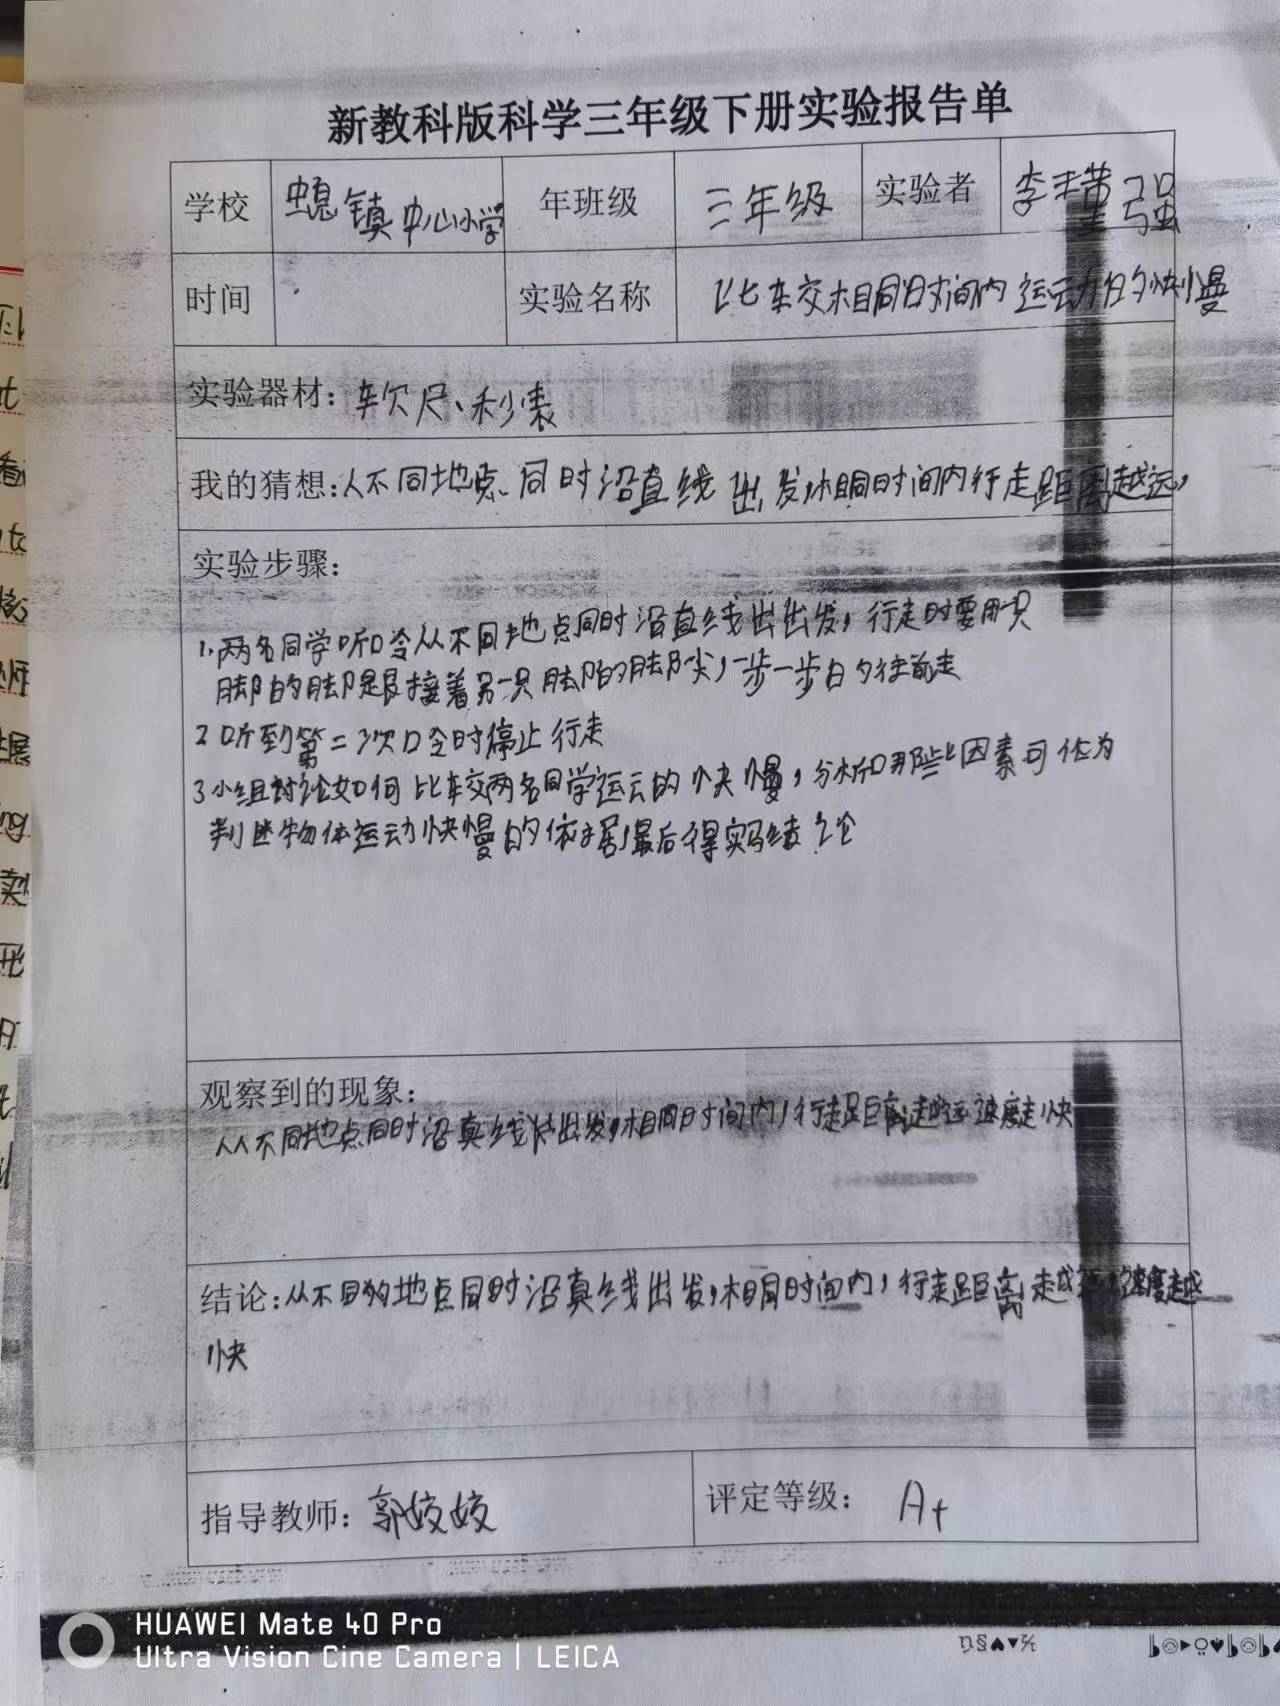 新教科版科学三年级下册实验报告单
学校 螅镇中心小学 年班级 三年级 实验者 李
时间 实验名称 比较相同时间内运动的快慢
实验器材：软尺、秒表
我的猜想：从不同地点同时沿直线出发,相同时间内行走距离越远,
实验步骤：
1.两名同学听口令从不同地点同时沿直线出出发,行走时要用一只
脚的脚跟接着另一只脚的脚尖,一步一步的往前走
2 听到第二次口令时停止行走
3 小组讨论如何比较两名同学运动的快慢,分析哪些因素可作为
判断物体运动快慢的依据,最后得实验结论
观察到的现象：
从不同地点同时沿直线出发,相同时间内,行走距离越远速度走快
结论：从不同的地点同时沿直线出发,相同时间内,行走距离越远,速度越
快
指导教师：郭姣姣 评定等级： A+
HUAWEI Mate 40 Pro
Ultra Vision Cine Camera | LEICA